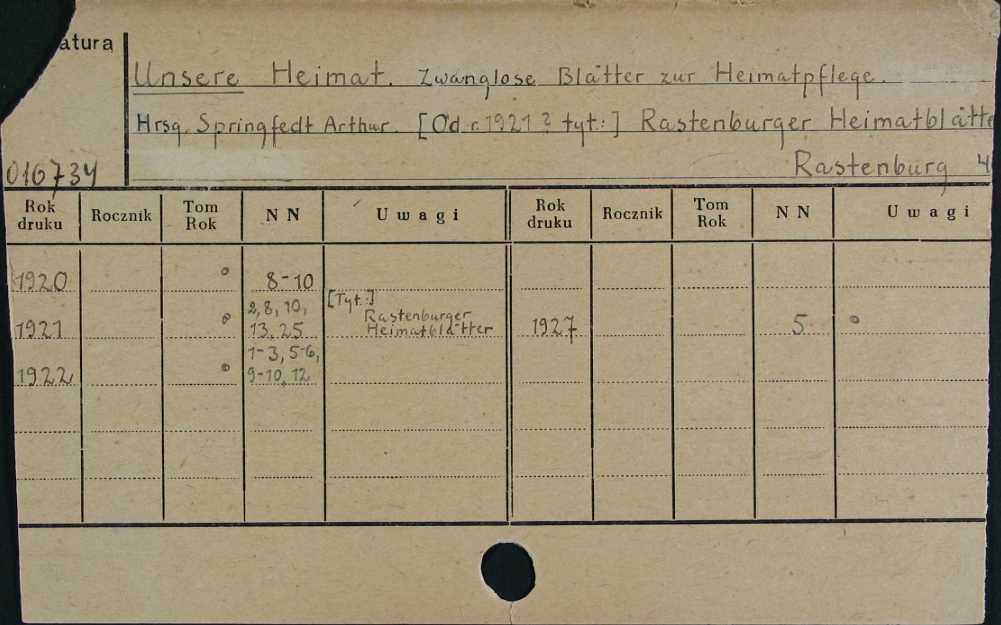 atura
Unsere Heimat. Zwanglose Blätter zur Heimatpflege.
Hrsg. Springfedt Arthur. [Od r. 1921 ? tyt.:] Rastenburger Heimatblätte
Rastenburg 4
016734
Rok druku Rocznik Tom Rok NN Uwagi Rok druku Rocznik Tom Rok NN Uwagi
1920 8-10
2, 8, 10, [Tyt.:]
Rastenburger
1921 13, 25 Heimatblätter 1927 5
1-3, 5-6,
1922 9-10, 12